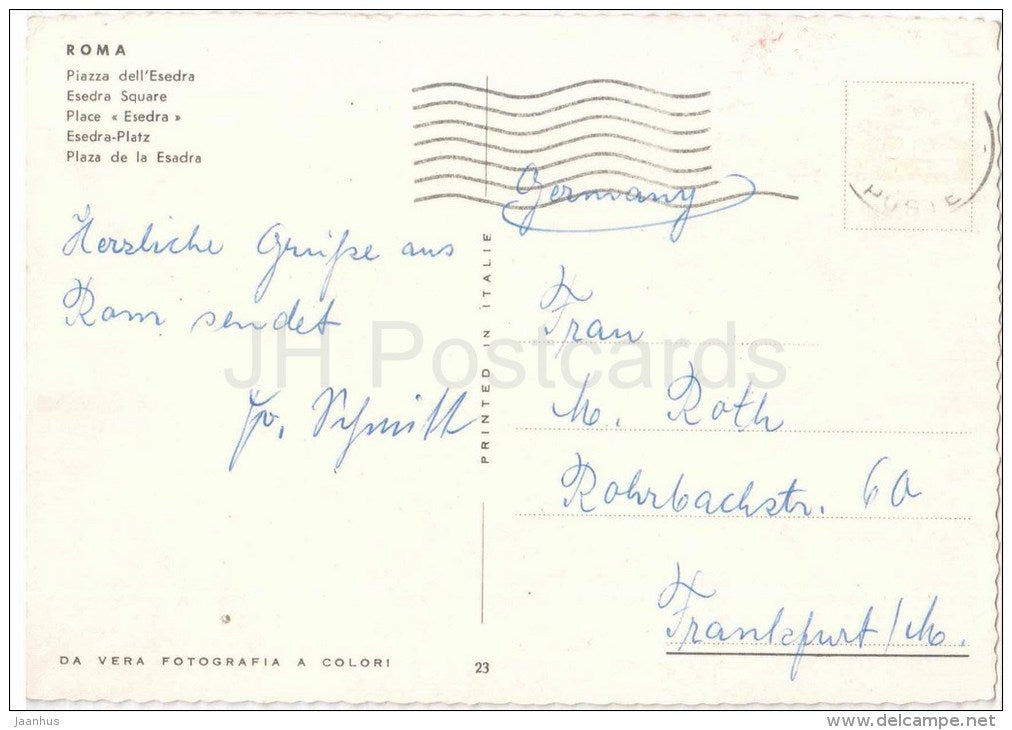 ROMA
Piazza dell'Esedra
Esedra Square
Place « Esedra »
Esedra-Platz
Plaza de la Esadra
Herzliche Grüße aus
Rom sendet
Schmitt
PRINTED IN ITALIE
Germany
Frau
M. Roth
Rohrbachstr. 60
Frankfurt/M.
DA VERA FOTOGRAFIA A COLORI
23
JH Postcards
jaanhus
www.delcampe.net